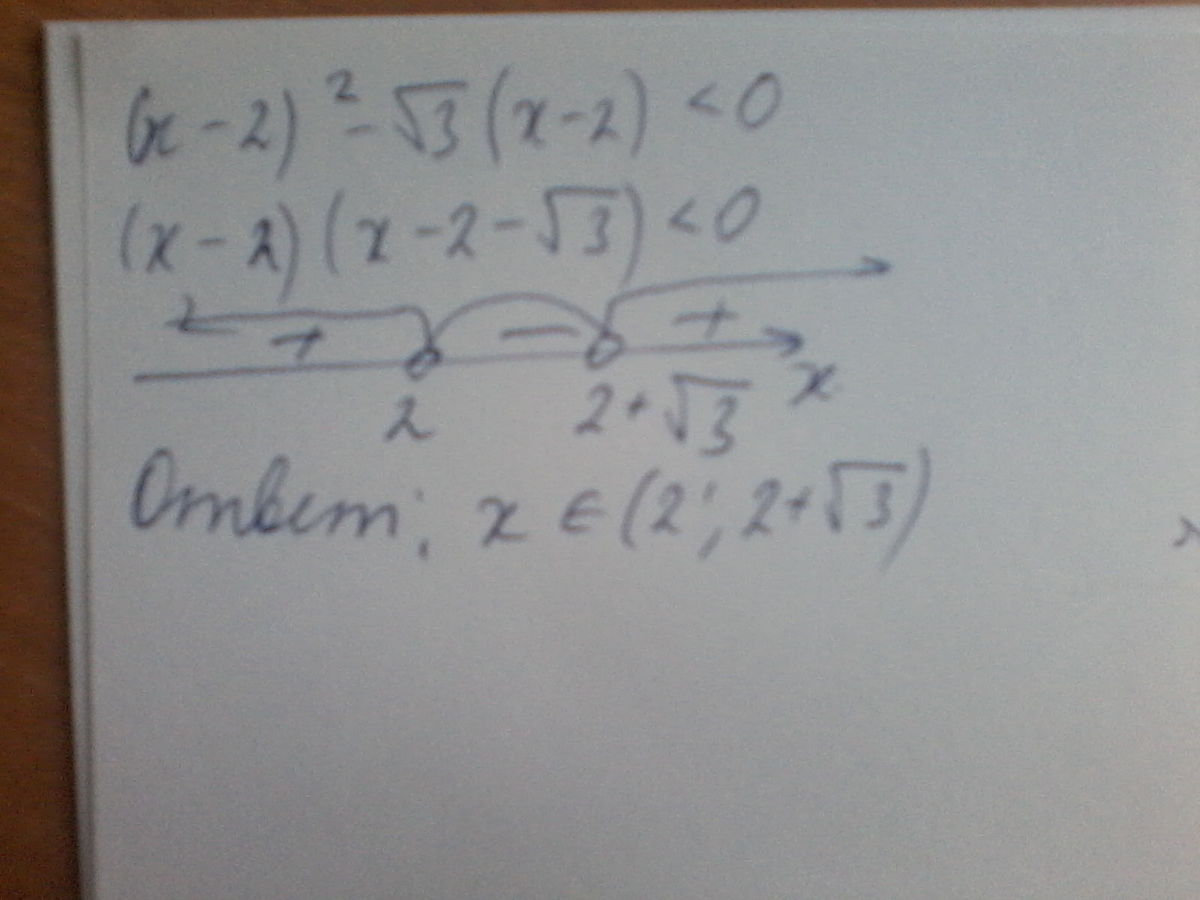 (x-2)² - √3(x-2) <0
(x-2)(x-2-√3) <0
+ − +
2 2+√3 x
Ответ: x ∈ (2; 2+√3)